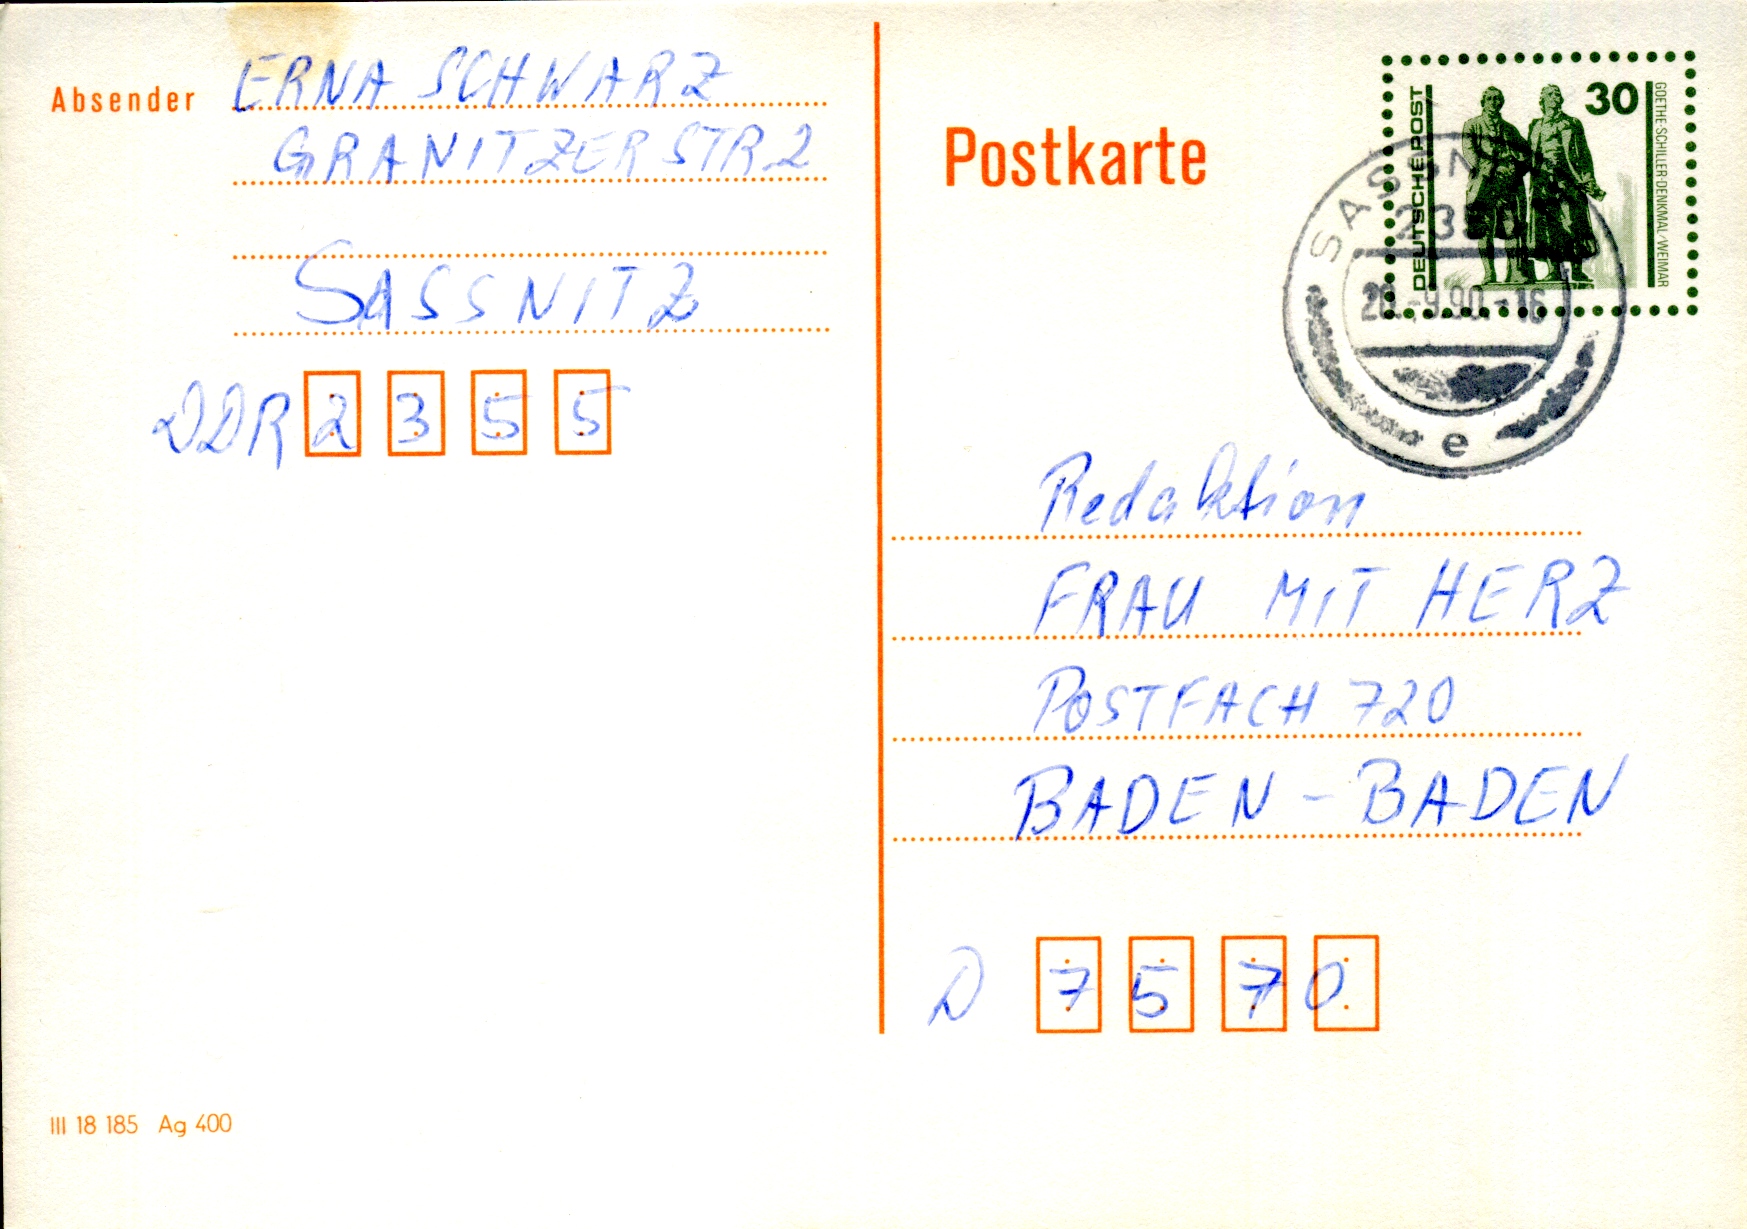 Absender ERNA SCHWARZ
GRANITZER STR 2
SASSNITZ
DDR 2 3 5 5
III 18 185 Ag 400
Postkarte
DEUTSCHE POST
30
GOETHE-SCHILLER-DENKMAL/WEIMAR
SASSNITZ
2355
-9.90-16
e
Redaktion
FRAU MIT HERZ
POSTFACH 720
BADEN-BADEN
D 7 5 7 0